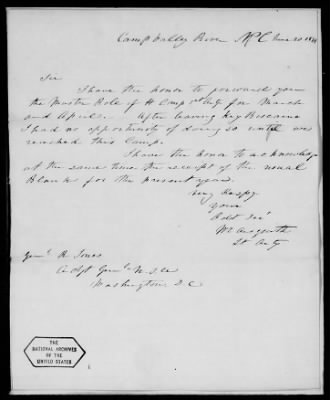 Camp Valley River N C June 20 18
Sir
I have the honor to forward you
the Muster Role of H Comp 1st Arty for March
and April. After leaving Key Biscaine
I had no opportunity of doing so until we
reached this Camp.
I have the honor to acknowledge
at the same time the receipt of the usual
Blanks for the present year.
Very Respy
Your
Obdt Svt
1st Arty
Genl R Jones
Adjt Genl U.S.A
Washington D.C
THE
NATIONAL ARCHIVES
OF THE
UNITED STATES